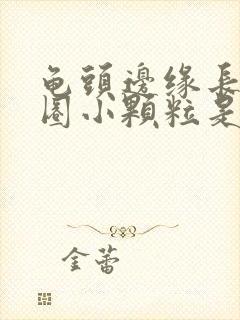 龟頭邊缘長
圈小顆粒是
金蕾